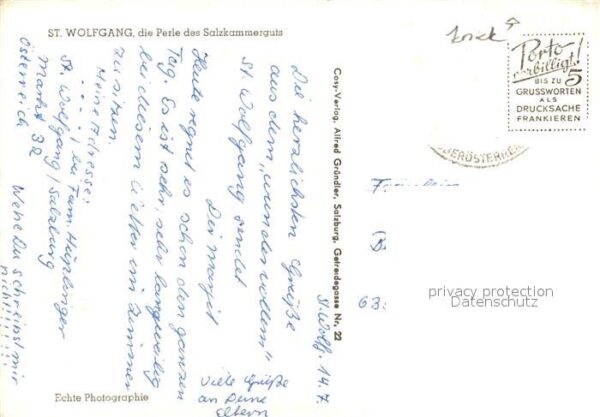 ST. WOLFGANG, die Perle des Salzkammerguts
St. Wolfg. 14.7
Die herzlichsten Grüße
aus dem „wundervollem"
St. Wolfgang sendet
Dir Margit
Heute regnet es schon den ganzen
Tag. Es ist sehr, sehr langweilig
bei diesem Wetter im Zimmer
zu sitzen.
Meine Adresse:
bei Fam. Hüplinger
St. Wolfgang / Salzburg
Markt 32
Österreich
Wehe Du schreibst mir
nicht!!!!!!!
Viele Grüße
an Deine
Eltern
Echte Photographie
Cosy-Verlag, Alfred Gründler, Salzburg, Getreidegasse Nr. 22
Porto
verbilligt!
BIS ZU 5
GRUSSWORTEN
ALS
DRUCKSACHE
FRANKIEREN
OBERÖSTERREICH
63
privacy protection
Datenschutz